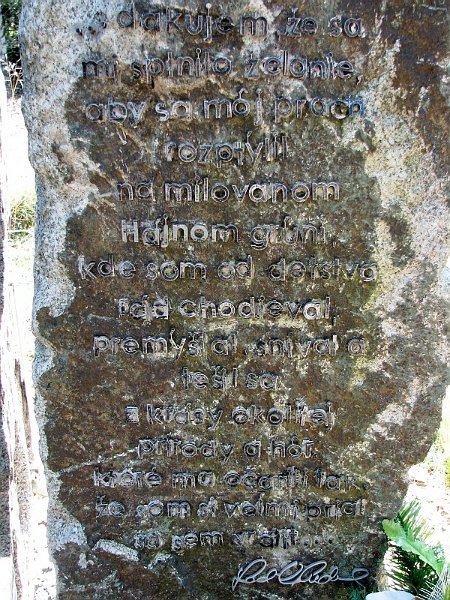 ...ďakujem, že sa
mi splnilo želanie,
aby sa môj prach
rozptýlil
na milovanom
Hájnom grúni,
kde som od detstva
rád chodieval,
premýšľal, sníval a
tešil sa
z krásy okolitej
prírody a hôr,
ktoré ma očarili tak,
že som si veľmi prial
sa sem vrátiť...